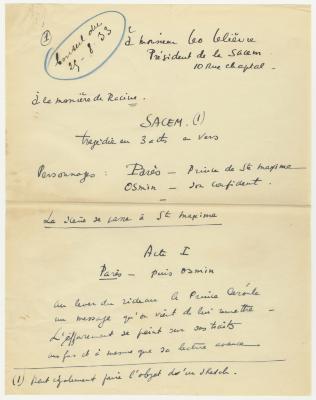 (1)
Conseil du
29-8-33
à Monsieur Léo Lelièvre
Président de la Sacem
10 Rue Chaptal -
à la manière de Racine.
SACEM. (1)
tragédie en 3 actes en vers
Personnages : Parès - Prince de Ste Maxime
Osmin - son confident.
La scène se passe à Ste Maxime
Acte I
Parès - puis Osmin
au lever du rideau le Prince
un message qu'on vient de lui remettre -
L'effarement se peint sur ses traits
au fur et à mesure que sa lecture avance
(1) Peut également faire l'objet d'un sketch.